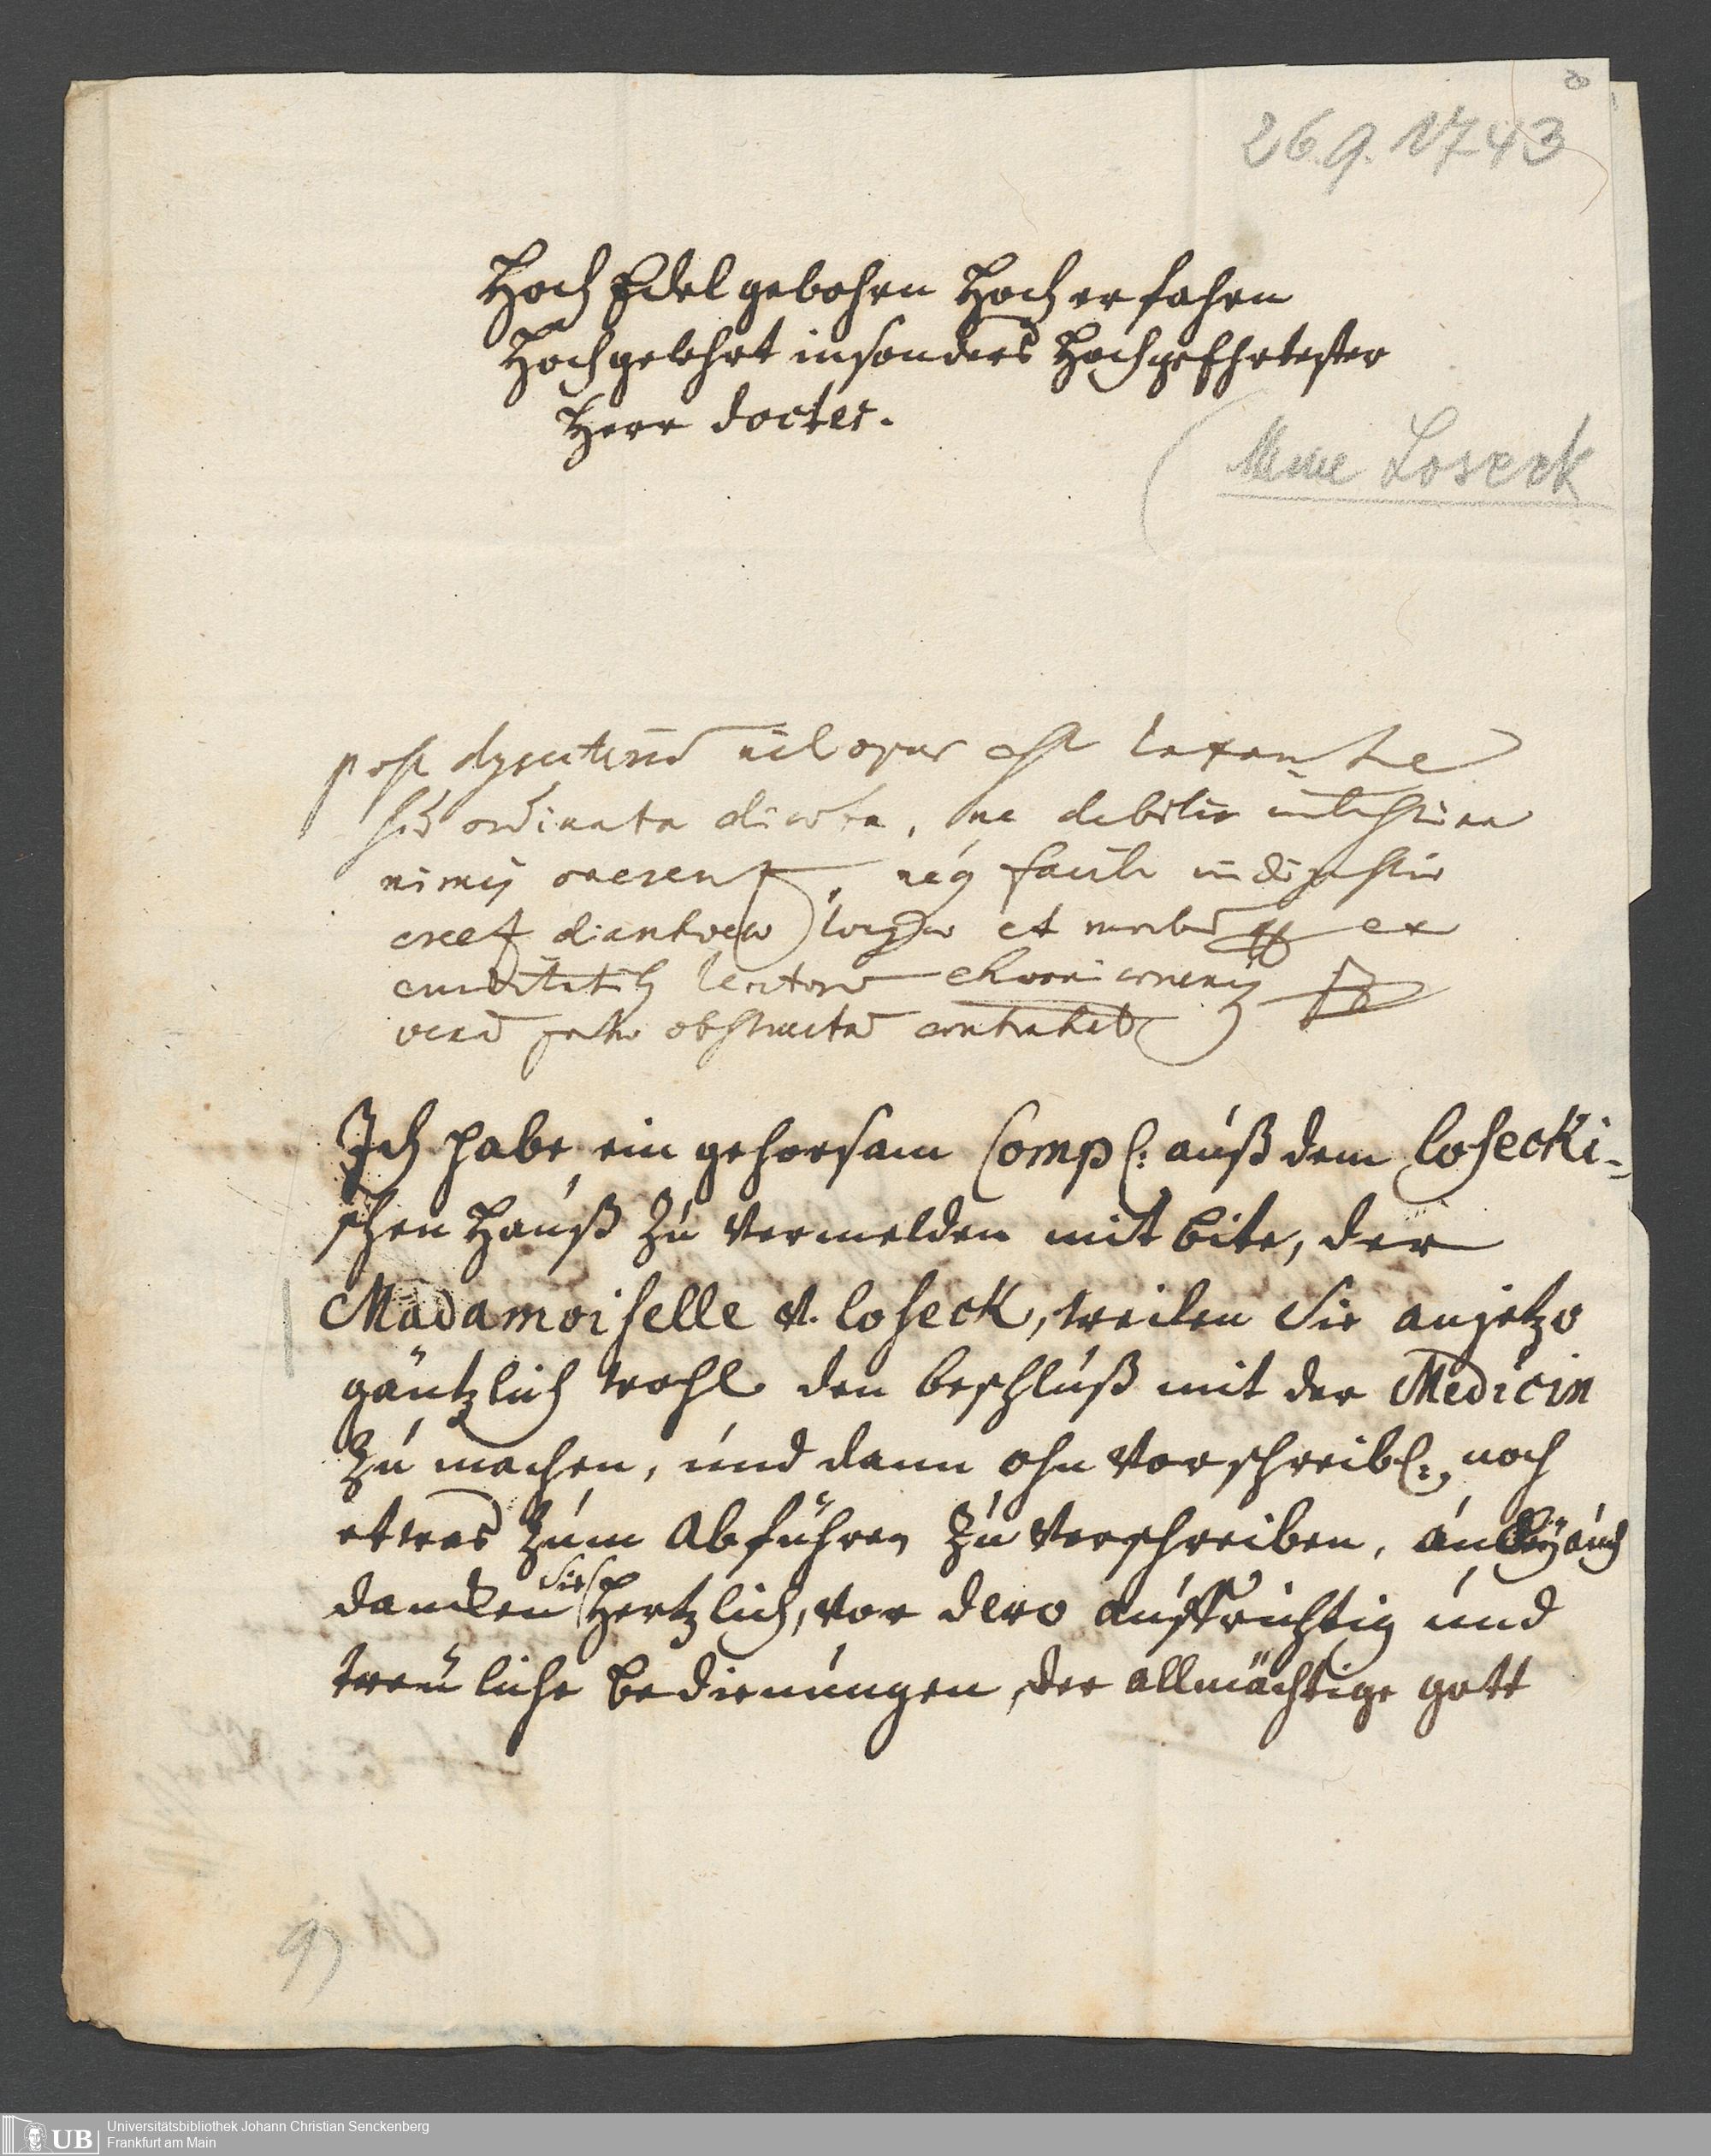 20
26.9.1743
Hoch Edel gebohrn Hoch erfahrn
Hochgelehrt insonders HochgeEhrtester
Herr docter.
Mme Loseck
post dysenteriā nil opus est laxante
sed ordinata diaeta, ne debilia intestina
nimis onerent, neq facile
et morbū ex
lentore
obstructa contrahet
Ich habe ein gehorsam Compl: auß dem losecki-
schen Hauß zu vermelden mit bite, der
Madamoiselle v. loseck, weilen Sie anjetzo
gäntzlich wohl den beschluß mit der Medicin
zu machen, und dann ohn vorschreibl: noch
etwas zum abführen zu verschreiben, anbey auch
dancken Sie Hertzlich, vor dero auffrichtig und
treuliche bedienungen, der allmächtige gott
97
UB
Universitätsbibliothek Johann Christian Senckenberg
Frankfurt am Main